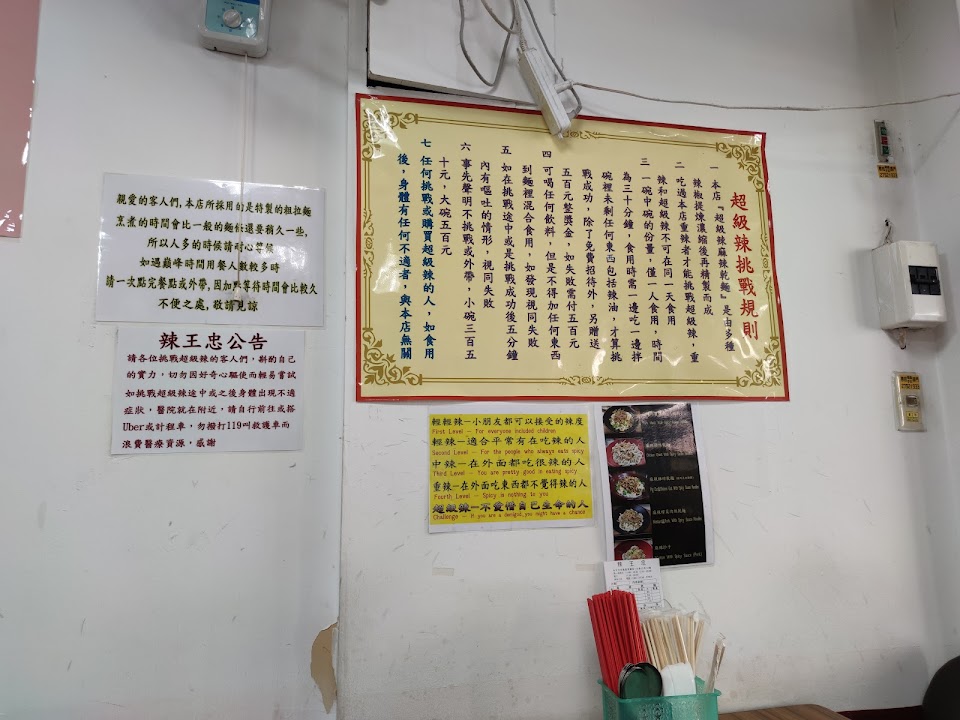 親愛的客人們,本店所採用的是特製的粗拉麵
烹煮的時間會比一般的麵條還要稍久一些,
所以人多的時候請耐心等候
如遇巔峰時間用餐人數較多時
請一次點完餐點或外帶,因加點等待時間會比較久
不便之處,敬請見諒
辣王忠公告
請各位挑戰超級辣的客人們,斟酌自己
的實力,切勿因好奇心驅使而輕易嘗試
如挑戰超級辣途中或之後身體出現不適
症狀,醫院就在附近,請自行前往或搭
Uber或計程車,勿撥打119叫救護車而
浪費醫療資源,感謝
超級辣挑戰規則
一 本店『超級辣麻辣乾麵』是由多種
辣椒提煉濃縮後再精製而成
二 吃過本店重辣者才能挑戰超級辣,重
辣和超級辣不可在同一天食用
三 一碗中碗的份量,僅一人食用,時間
為三十分鐘,食用時需一邊吃一邊拌
碗裡未剩任何東西包括辣油,才算挑
戰成功,除了免費招待外,另贈送
五百元整獎金,如失敗需付五百元
四 可喝任何飲料,但是不得加任何東西
到麵裡混合食用,如發現視同失敗
五 如在挑戰途中或是挑戰成功後五分鐘
內有嘔吐的情形,視同失敗
六 事先聲明不挑戰或外帶,小碗三百五
十元,大碗五百元
七 任何挑戰或購買超級辣的人,如食用
後,身體有任何不適者,與本店無關
輕輕辣—小朋友都可以接受的辣度
First Level — For everyone included children
輕辣—適合平常有在吃辣的人
Second Level — For the people who always eats spicy
中辣—在外面都吃很辣的人
Third Level — You are pretty good in eating spicy
重辣—在外面吃東西都不覺得辣的人
Fourth Level — Spicy is nothing to you
超級辣—不愛惜自己生命的人
Challenge — If you are a demigod,you might have a chance
辣王忠